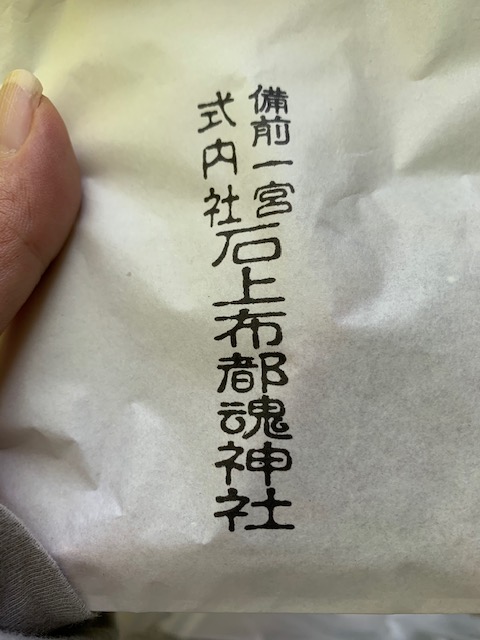 備前一宮
式内社
石上布都魂神社